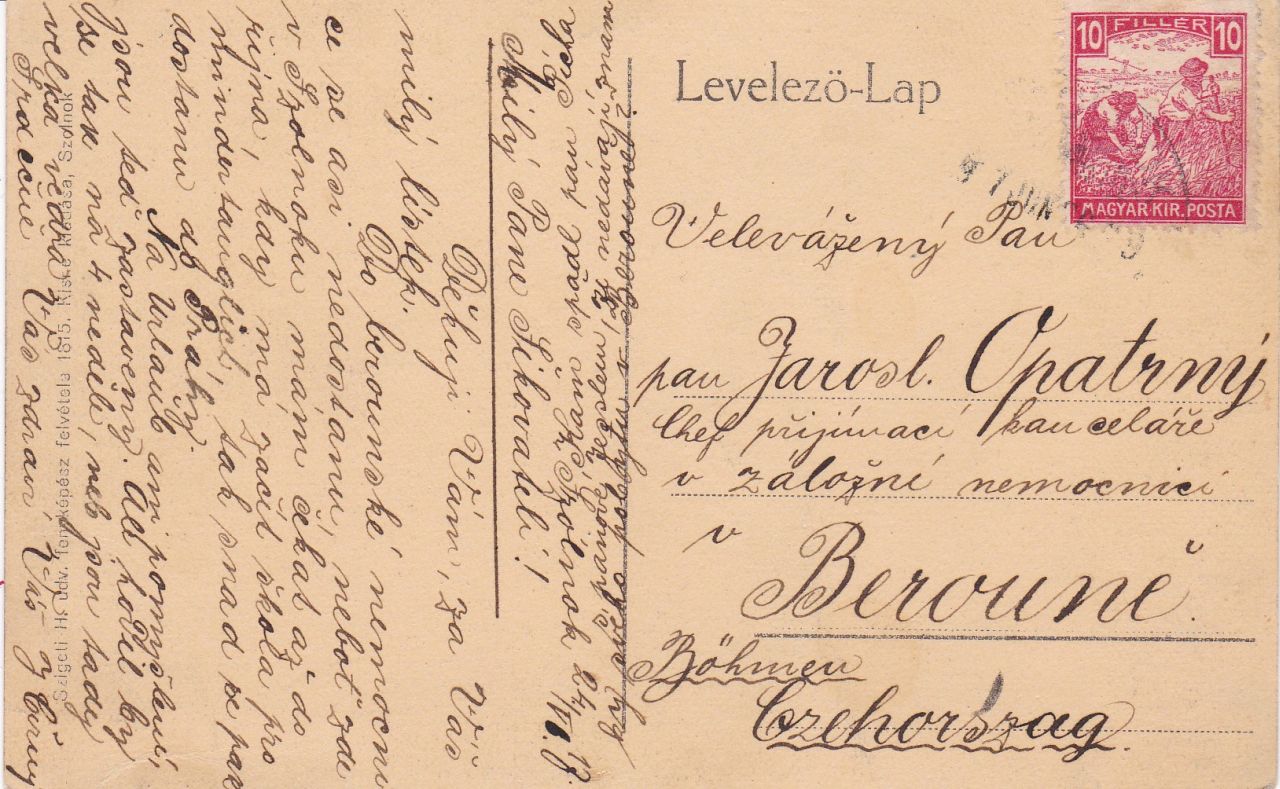 10 FILLÉR 10
MAGYAR KIR. POSTA
Levelező-Lap
Velevážený Pan
pan Jarosl. Opatrný
Chef přijímací kanceláře
v záložní nemocnici
v Berouně.
Böhmen
Czehország.
Szolnok 24/VI. 17.
Milý Pane Šikovateli!
Děkuji Vám, za Váš
milý lístek.
Do berounské nemocni
ce se asi nedostanu, nebot zde
v Szolnoku mám čekat až do
října, kdy má začít škola pro
mindertauglich, tak snad se pak
dostanu do Prahy.
Na Urlaub ani pomyšlení,
jsou teď zastaveny. Ač hodil by
se tak na 4 neděle, neb jsou tady
velká vedra. Váš
Srdečně Vás zdraví
Szigeti H. udv. fényképész felvétele 1915. Kiské kiadása, Szolnok